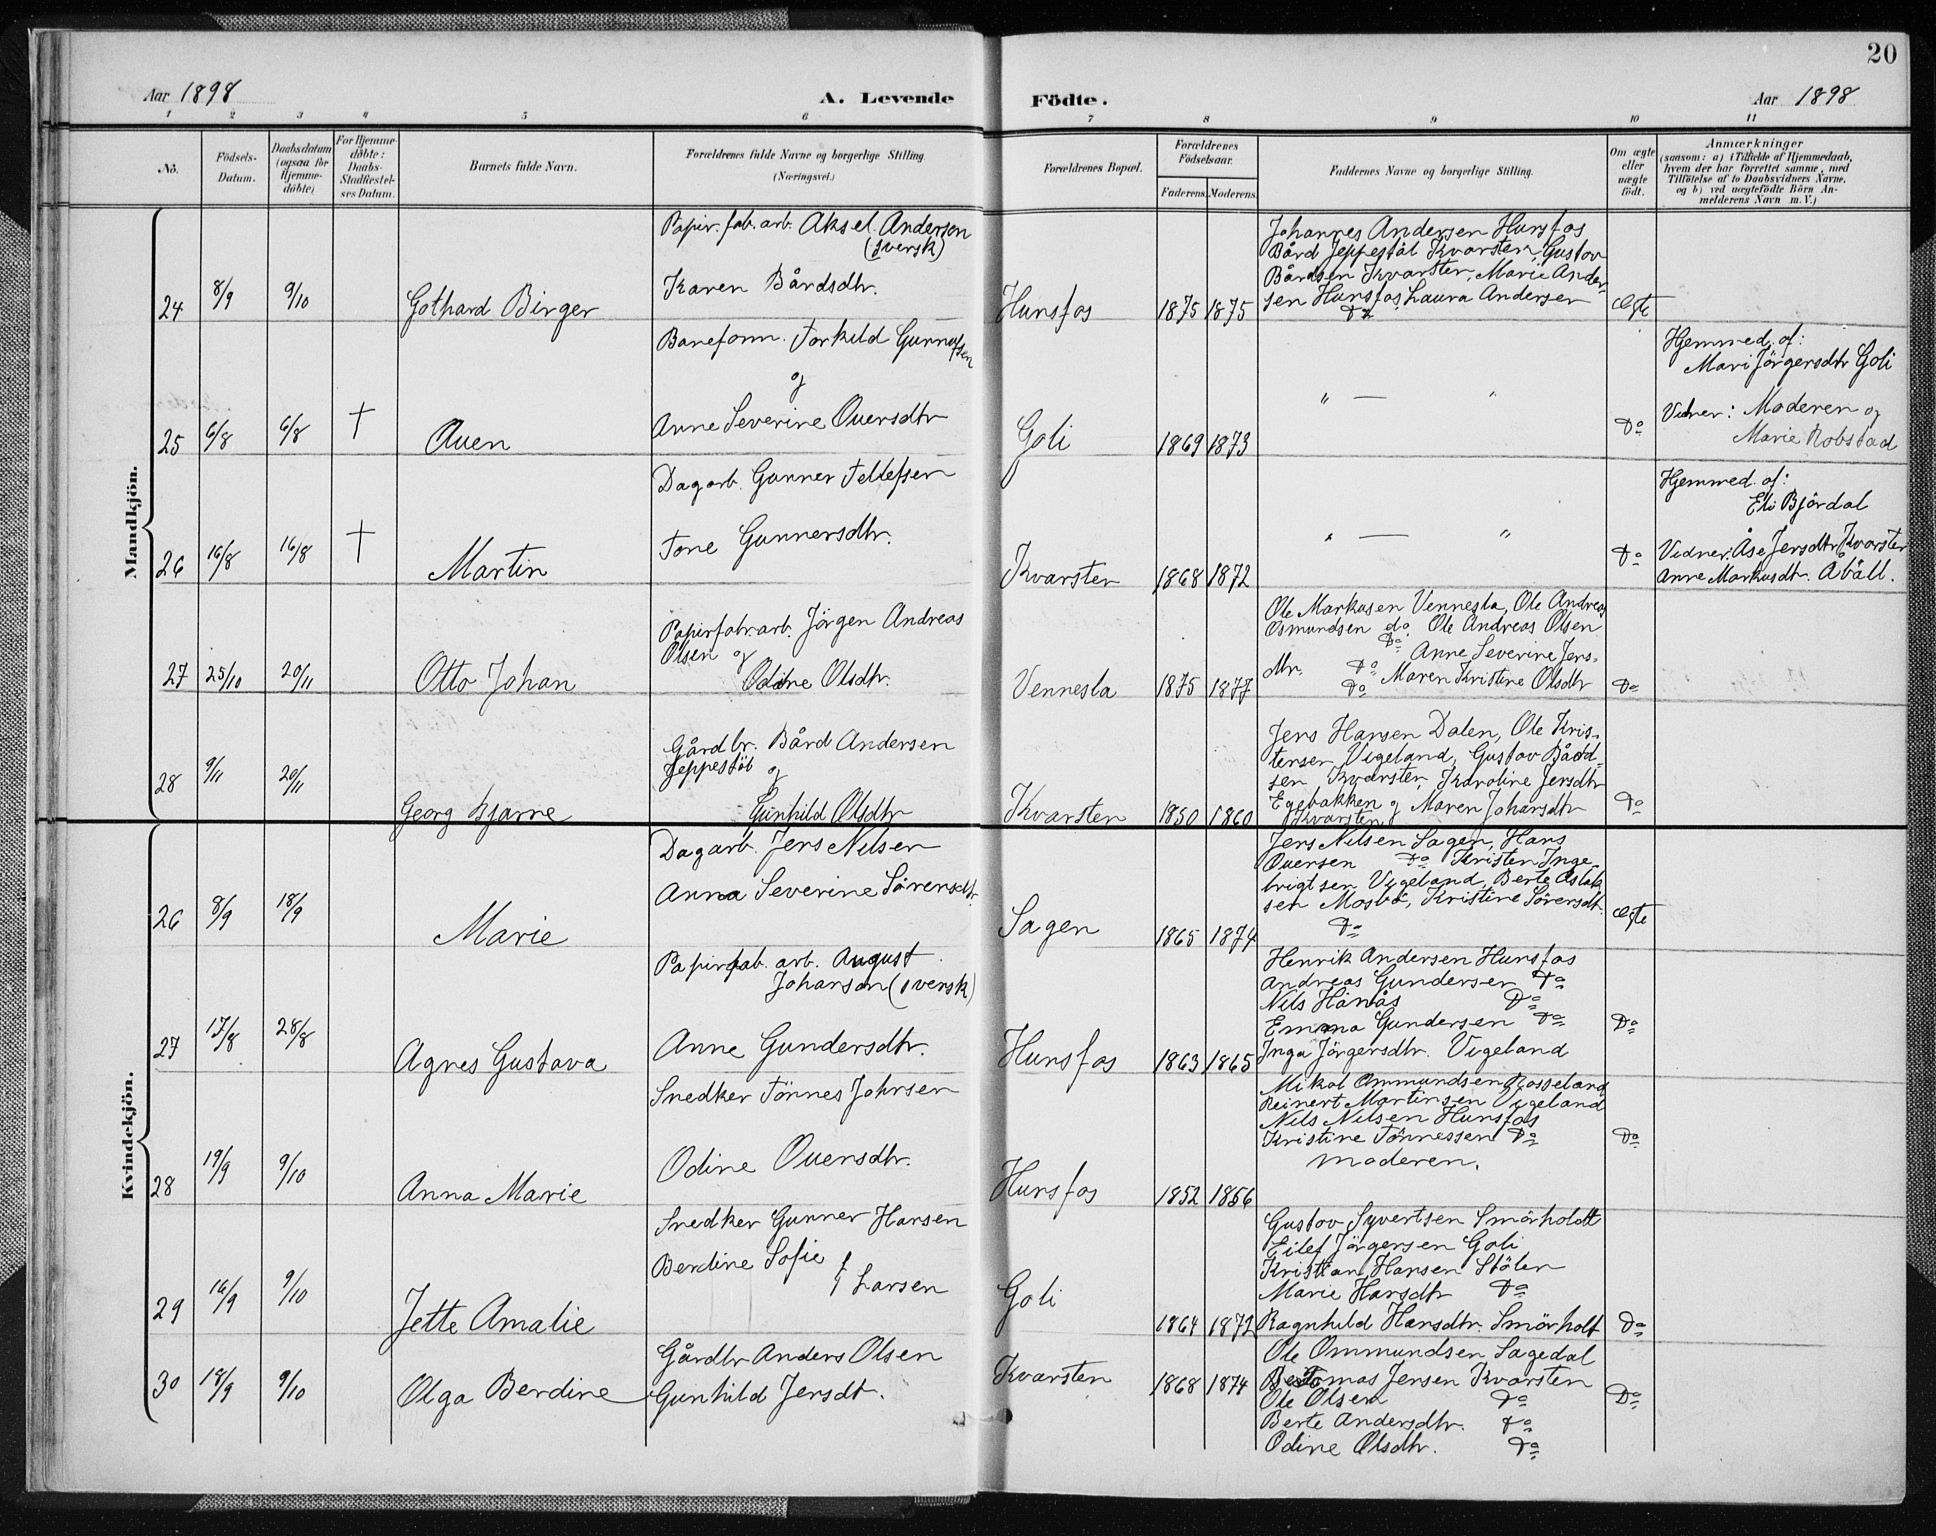 20
Aar 1898
A. Levende
Födte.
Aar 1898
1 2 3 4 5 6 7 8 9 10 11
No.
Födsels-
Datum.
Daabsdatum
(ogsaa for
Hjemme-
döbte)
For Hjemme-
döbte:
Daabs-
Stadfestel-
ses Datum.
Barnets fulde Navn.
Forældrenes fulde Navne og borgerlige Stilling.
(Næringsvei.)
Forældrenes Bopæl.
Forældrenes
Födselsaar.
Faderens.
Moderens.
Faddernes Navne og borgerlige Stilling.
Om ægte
eller
uægte
födt.
Anmærkninger
(saasom: a) i Tilfælde af Hjemmedaab,
hvem der har forrettet samme, med
Tilföielse af to Daabsvidners Navne,
og b) ved uægtefödte Börn An-
melderens Navn m. V.)
Mandkjön.
24
8/9
9/10
Gothard Birger
Papir. fab. arb. Aksel Anderson
(svensk)
Karen Bårdsdtr.
Hunsfos
1875 1875
Johannes Andersen Hunsfos
Bård Jeppestøl Kvarsten, Gustav
Bårdsen Kvarsten, Marie Ander-
sen Hunsfos, Laura Andersen
Do
Ægte
25
6/8
6/8
†
Auen
Baneform. Torkild Gunnufsen
og
Anne Severine Ouensdtr
Goli
1869 1873
" — "
Do
Hjemmed. af:
Mari Jörgensdtr Goli
Vidner: Moderen og
Marie Robstad
26
16/8
16/8
†
Martin
Dagarb. Gunner Tellefsen
Tone Gunnersdtr.
Kvarsten
1868 1872
" — "
Do
Hjemmed. af:
Eli Björdal
Vidner: Åse Jensdtr Kvarsten
Anne Markusdtr. Åbåll.
27
25/10
20/11
Otto Johan
Papirfabr. arb. Jörgen Andreas
Olsen og
Odine Olsdtr.
Vennesla
1875 1877
Ole Markusen Vennesla, Ole Andreas
Osmundsen do. Ole Andreas Olsen
Do Anne Severine Jens-
dtr. Do Maren Kristine Olsdtr
Do
Do
28
9/11
20/11
Georg Bjarne
Gårdbr. Bård Andersen
Jeppestöl og
Gunhild Olsdtr
Kvarsten
1850 1860
Jens Hansen Dalen, Ole Kris-
tensen Vigeland, Gustav Bård-
sen Kvarsten, Karoline Jensdtr
Egebakken og Maren Johansdtr
Kvarsten
Do
Kvindekjön.
26
8/9
18/9
Marie
Dagarb. Jens Nilsen
Anna Severine Sörensdtr.
Sagen
1865 1874
Jens Nilsen Sagen, Hans
Ouensen Do Kristen Inge
brigtsen Vigeland, Berte
sen Mosbö, Kristine Sörensdtr.
Do
Ægte
27
17/8
28/8
Agnes Gustava
Papirfab. arb. August
Johanson (svensk)
Anne Gundersdtr.
Hunsfos
1863 1865
Henrik Andersen Hunsfos
Andreas Gundersen Do
Nils Hånås Do
Emma Gundersen Do
Inga Jörgensdtr. Vigeland
Do
28
19/9
9/10
Anna Marie
Snedker Tönnes Johnsen
Odine Ouensdtr.
Hunsfos
1852 1856
Mikal Ommundsen Rosseland
Reinert Martinsen Vigeland
Nils Nilsen Hunsfos
Kristine Tönnessen Do
Moderen.
Do
29
16/9
9/10
Jette Amalie
Snedker Gunner Hansen
Berdine Sofie
f. Larsen
Goli
1864 1872
Gustav Syvertsen Smörholdt
Eilef Jörgensen Goli
Kristian Hansen Stölen
Marie Hansdtr Do
Ragnhild Hansdtr. Smörholt
Do
30
18/9
9/10
Olga Berdine
Gårdbr Anders Olsen
Gunhild Jensdt.
Kvarsten
1868 1874
Ole Ommundsen Sagedal
Tomas Jensen Kvarsten
Ole Olsen Do
Berte Andersdtr. Do
Odine Olsdtr. Do
Do